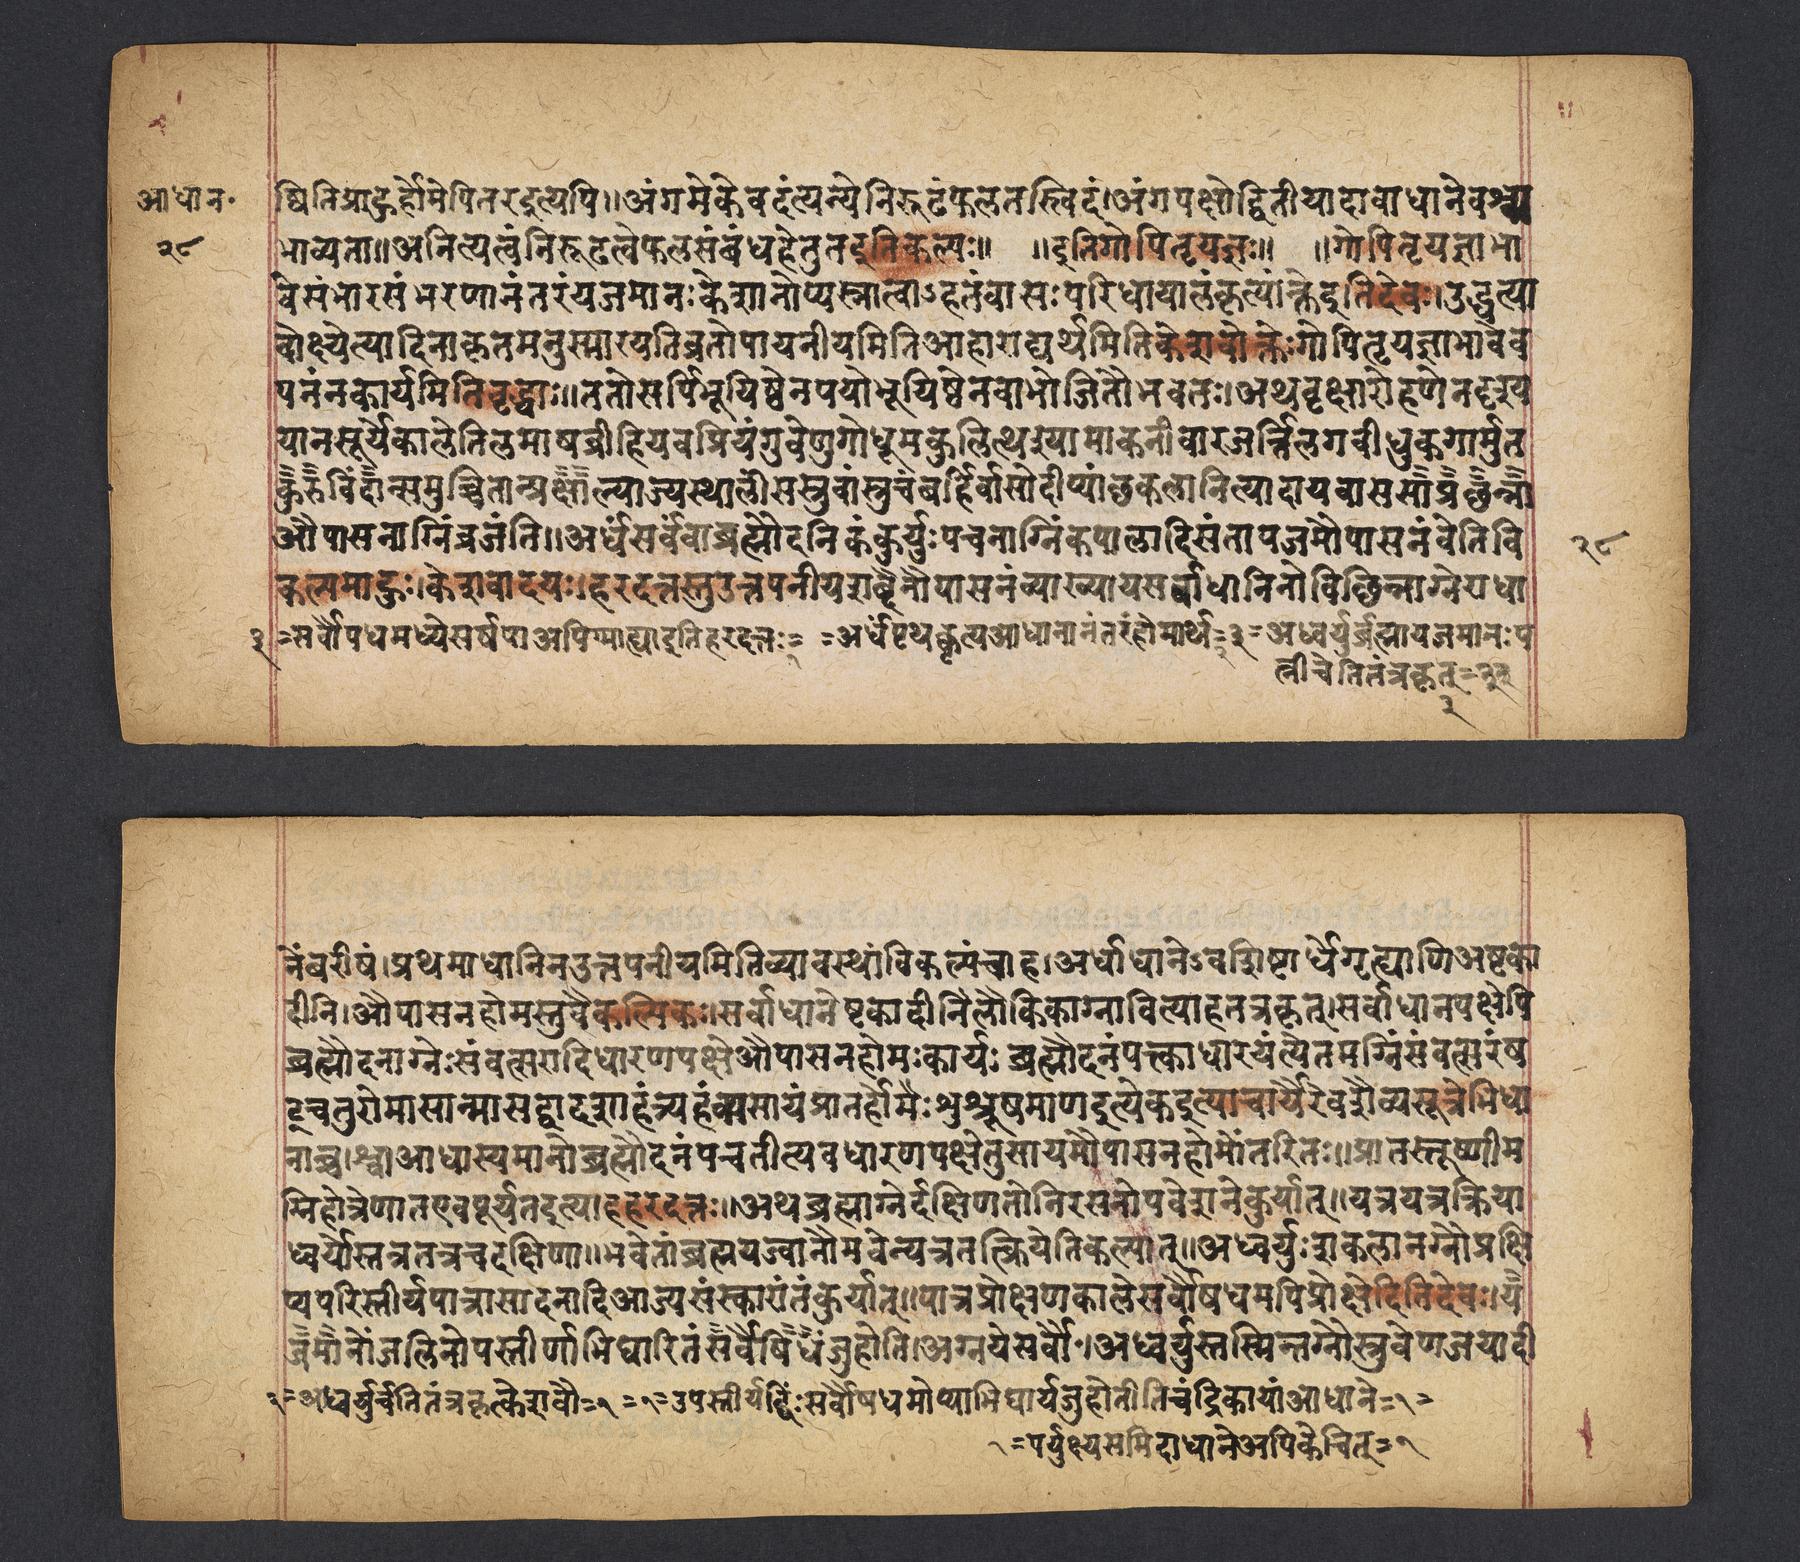 आधान॰
२८
ष्विति प्राहुर्होमेपितरइत्यपि॥अंगमेकेवदंत्यन्येनिरूढंफलतस्त्विदं।अंगपक्षेद्वितीयादावाधानेवश्य
भाव्यता॥अनित्यत्वंनिरूढत्वेफलसंबंधहेतुतइतिकल्पः॥ ॥इतिगोपितृयज्ञः॥ ॥गोपितृयज्ञाभा
वेसंभारसंभरणानंतरंयजमानःकेशानोप्यस्नात्वाऽहतंवासःपरिधायालंकृत्यांक्तेइतिदेवः।उद्धृत्या
वोक्ष्येत्यादिनाकृतमनुस्मारयतिव्रतोपायनीयमितिआहाराद्यर्थमितिकेशवोक्तेःगोपितृयज्ञाभावेव
पनंनकार्यमितिवृद्धाः॥ततोसर्पिर्भूयिष्ठेनपयोभूयिष्ठेनवाभोजितौभवतः।अथवृक्षारोहणेनदृश्य
यानसूर्यकालेतिलमाषव्रीहियवप्रियंगुवेणुगोधूमकुलित्थश्यामाकनीवारजर्त्तिलगवीधुकगार्मुत
कुरुविंदान्समुच्चितान्प्रक्षाल्याज्यस्थालींसस्रुवांस्रुचंबर्हिर्वासोदीप्यांछकलानित्यादायवाससाप्रछन्ना
औपासनाग्निंव्रजंति॥अर्धंसर्वंवाब्रह्मौदनिकंकुर्युःपचनाग्निंकपालादिसंतापजमौपासनंवेतिवि
कल्पमाहुः।केशवादयः।हरदत्तस्तुउत्तपनीयशब्देनौपासनंव्याख्यायसर्वाधानिनोविछिन्नाग्नेराधा
२८
३=सर्वौषधमध्येसर्षपाअपिग्माह्याइतिहरदत्तः= =अर्धंपृथक्कृत्यआधानानंतरंहोमार्थं=३=अध्वर्युर्ब्रह्मायजमानःप
त्नीचेतितंत्रकृत्=
३
नेंबरीषं।प्रथमाधानिनउत्तपनीयमितिव्यावस्थांविकल्पंचाह।अर्धाधानेऽवशिष्टार्धेगृह्याणिअष्टका
दीनि।औपासनहोमस्तुवैकल्पिकः।सर्वाधानेष्टकादीनिलौकिकाग्नावित्याहतंत्रकृत्।सर्वाधानपक्षेपि
ब्रह्मौदनाग्नेःसंवत्सरादिधारणपक्षेऔपासनहोमःकार्यः ब्रह्मौदनंपक्त्काधारयंत्येतमग्निंसंवत्सरंष
ट्चतुरोमासान्मासद्वादशाहंत्र्यहंवासायंप्रातर्होमैःशुश्रूषमाणइत्येकइत्याचार्यैरेवशैव्यसूत्रेभिधा
नाच्च।श्वाआधास्यमानोब्रह्मौदनंपचतीत्यवधारणपक्षेतुसायमौपासनहोमोंतरितः॥प्रातस्तूष्णीम
ग्निहोत्रेणातएवपूर्यतइत्याहहरदत्तः॥अथब्रह्माग्नेर्दक्षिणतोनिरसनोपवेशनेकुर्यात्॥यत्रयत्रक्रिया
ध्वर्योस्तत्रतत्रचदक्षिणा॥भवेतांब्रह्मयज्वानौभवेन्यत्रतत्क्रियेतिकल्पात्॥अध्वर्युःशकलानग्नौप्रक्षि
प्यपरिस्तीर्यपात्रासादनादिआज्यसंस्कारांतंकुर्यात्॥पात्रप्रोक्षणकालेसर्वौषधमपिप्रोक्षेदितिदेवः।य
जमानोंजलिनोपस्तीर्णाभिघारितंसर्वौषधंजुहोति।अग्नयेसर्वौ॰।अध्वर्युस्तस्मिन्नग्नौस्रुवेणजयादी
२=अध्वर्युर्वेतितंत्रकृत्केशवौ=२ =१=उपस्तीर्यद्विःसर्वौषधमोप्याभिघार्यजुहोतीतिचंद्रिकायांआधाने=१=
१=पर्युक्ष्यसमिदाधानेअपिकेचित्=१